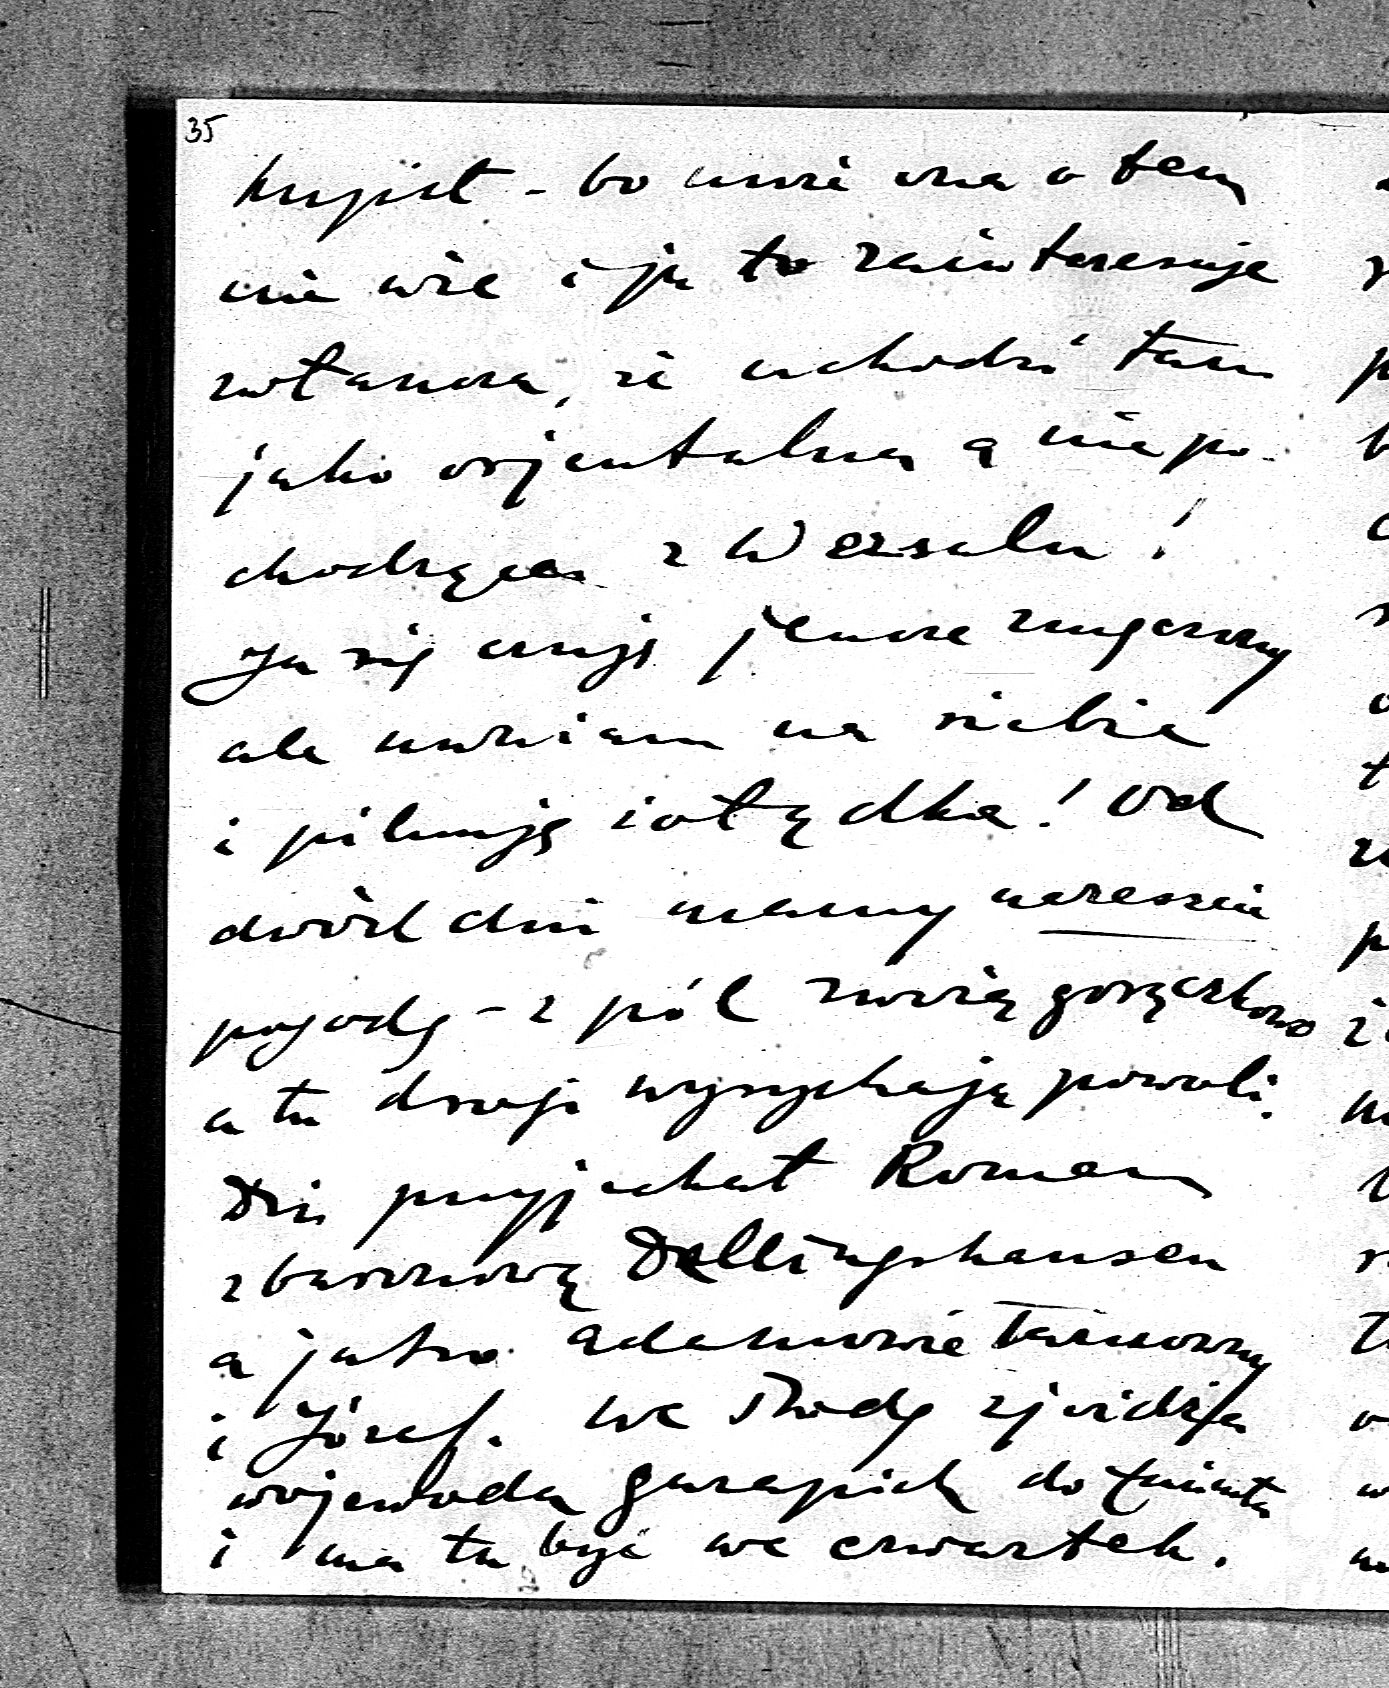 35
kupił - bo może ona o tem
nie wie i ją to zainteresuje
zwłaszcza, że uchodzi tam
jako orjentalna a nie po-
chodząca z Wersalu!
Ja się czuję jeszcze zmęczony
ale uważam na siebie
i pilnuję żołądka! Od
dwóch dni mamy nareszcie
pogodę - z pól zwożą gorączkowo
a tu drogi wysychają powoli.
Dziś przyjechał Roman
z baronową Dellingshausen
a jutro Adamowie Tarnowscy
i Józef. We środę zjeżdża
wojewoda Garapich do
i ma tu być we czwartek.